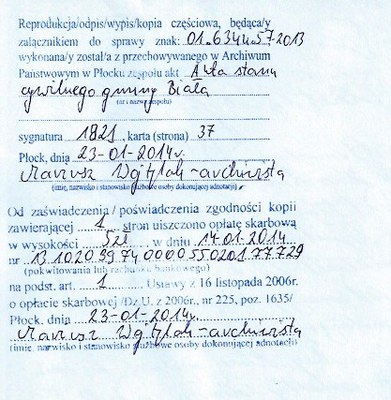 Reprodukcja/odpis/wypis/kopia częściowa, będąca/y
załącznikiem do sprawy znak: 01.6344.57.2013
wykonana/y został/a z przechowywanego w Archiwum
Państwowym w Płocku zespołu akt Akta stanu
cywilnego gminy Biała
(nr i nazwa zespołu)
sygnatura 1821, karta (strona) 37
Płock, dnia 23-01-2014r.
Mariusz - archiwista
(imię, nazwisko i stanowisko służbowe osoby dokonującej adnotacji)
Od zaświadczenia / poświadczenia zgodności kopii
zawierającej 1 stron uiszczono opłatę skarbową
w wysokości 5zł w dniu 14.01.2014
nr 13 1020 3974 0000 5502 0177 7729
(pokwitowania lub rachunku bankowego)
na podst. art. 1 Ustawy z 16 listopada 2006r.
o opłacie skarbowej /Dz.U. z 2006r., nr 225, poz. 1635/
Płock, dnia 23-01-2014r.
Mariusz - archiwista
(imię, nazwisko i stanowisko służbowe osoby dokonującej adnotacji)